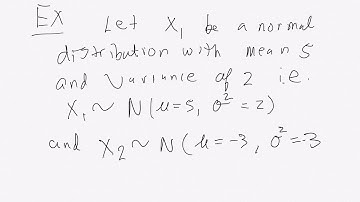 Ex Let X₁ be a normal
distribution with mean 5
and variance of 2 i.e.
X₁ ~ N(μ=5, σ²=2)
and X₂ ~ N(μ=-3, σ²=-3